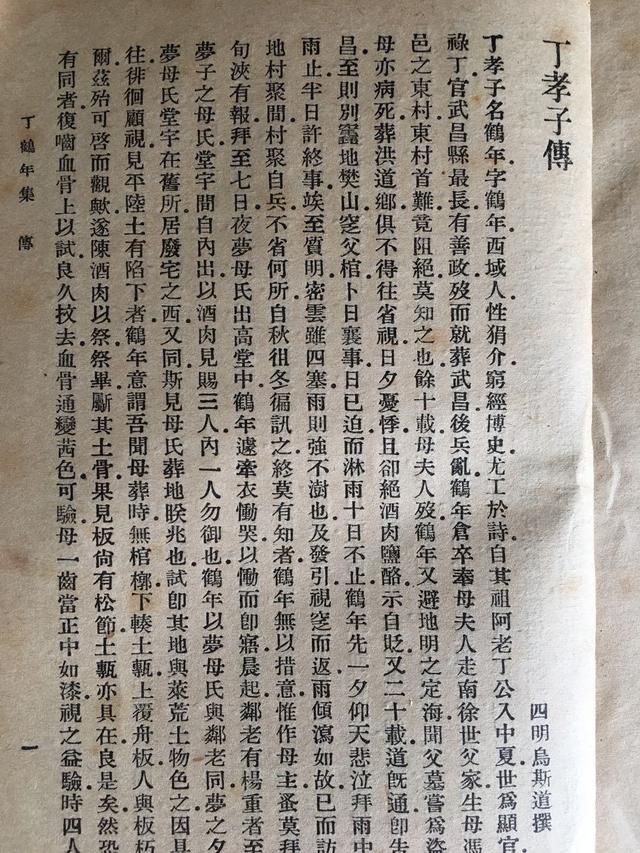 丁孝子傳
四明烏斯道撰
丁孝子名鶴年字鶴年西域人性狷介窮經博史尤工於詩自其祖阿老丁公入中夏世爲顯官
祿丁官武昌縣最長有善政歿而就葬武昌後兵亂鶴年倉卒奉母夫人走南徐世父家生母馮
邑之東村東村首難竟阻絕莫知之也餘十載母夫人歿鶴年又避地明之定海聞父墓嘗爲盜
母亦病死葬洪道鄉俱不得往省視日夕憂悸且卻絕酒肉鹽酪示自貶又二十載道旣通卽告
昌至則別靁地樊山窆父棺卜日襄事日已迫而淋雨十日不止鶴年先一夕仰天悲泣拜雨中
雨止半日許終事竢至質明密雲雖四塞雨則強不澍也及發引視窆而返雨傾瀉如故已而訪
地村聚間村聚自兵不省何所自秋徂冬徧訊之終莫有知者鶴年無以措意惟作母主蚤莫拜
旬浹有報拜至七日夜夢母氏出高堂中鶴年遽牽衣慟哭以慟而卽寤晨起鄰老有楊重者至
夢子之母氏堂宇間自內出以酒肉見賜三人內一人勿御也鶴年以夢母氏與鄰老同夢之夕
夢母氏堂宇在舊所居廢宅之西又同斯見母氏葬地朕兆也試卽其地與萊荒土物色之因具
往徘徊顧視見平陸土有陷下者鶴年意謂吾聞母葬時無棺槨下輳土甎上覆舟板人與板朽
爾茲殆可啓而觀歟遂陳酒肉以祭祭畢斸其土骨果見板尙有松節土甎亦具在良是矣然恐
有同者復嚙血骨上以試良久抆去血骨通變茜色可驗母一齒當正中如漆視之益驗時四人
丁鶴年集 傳
一